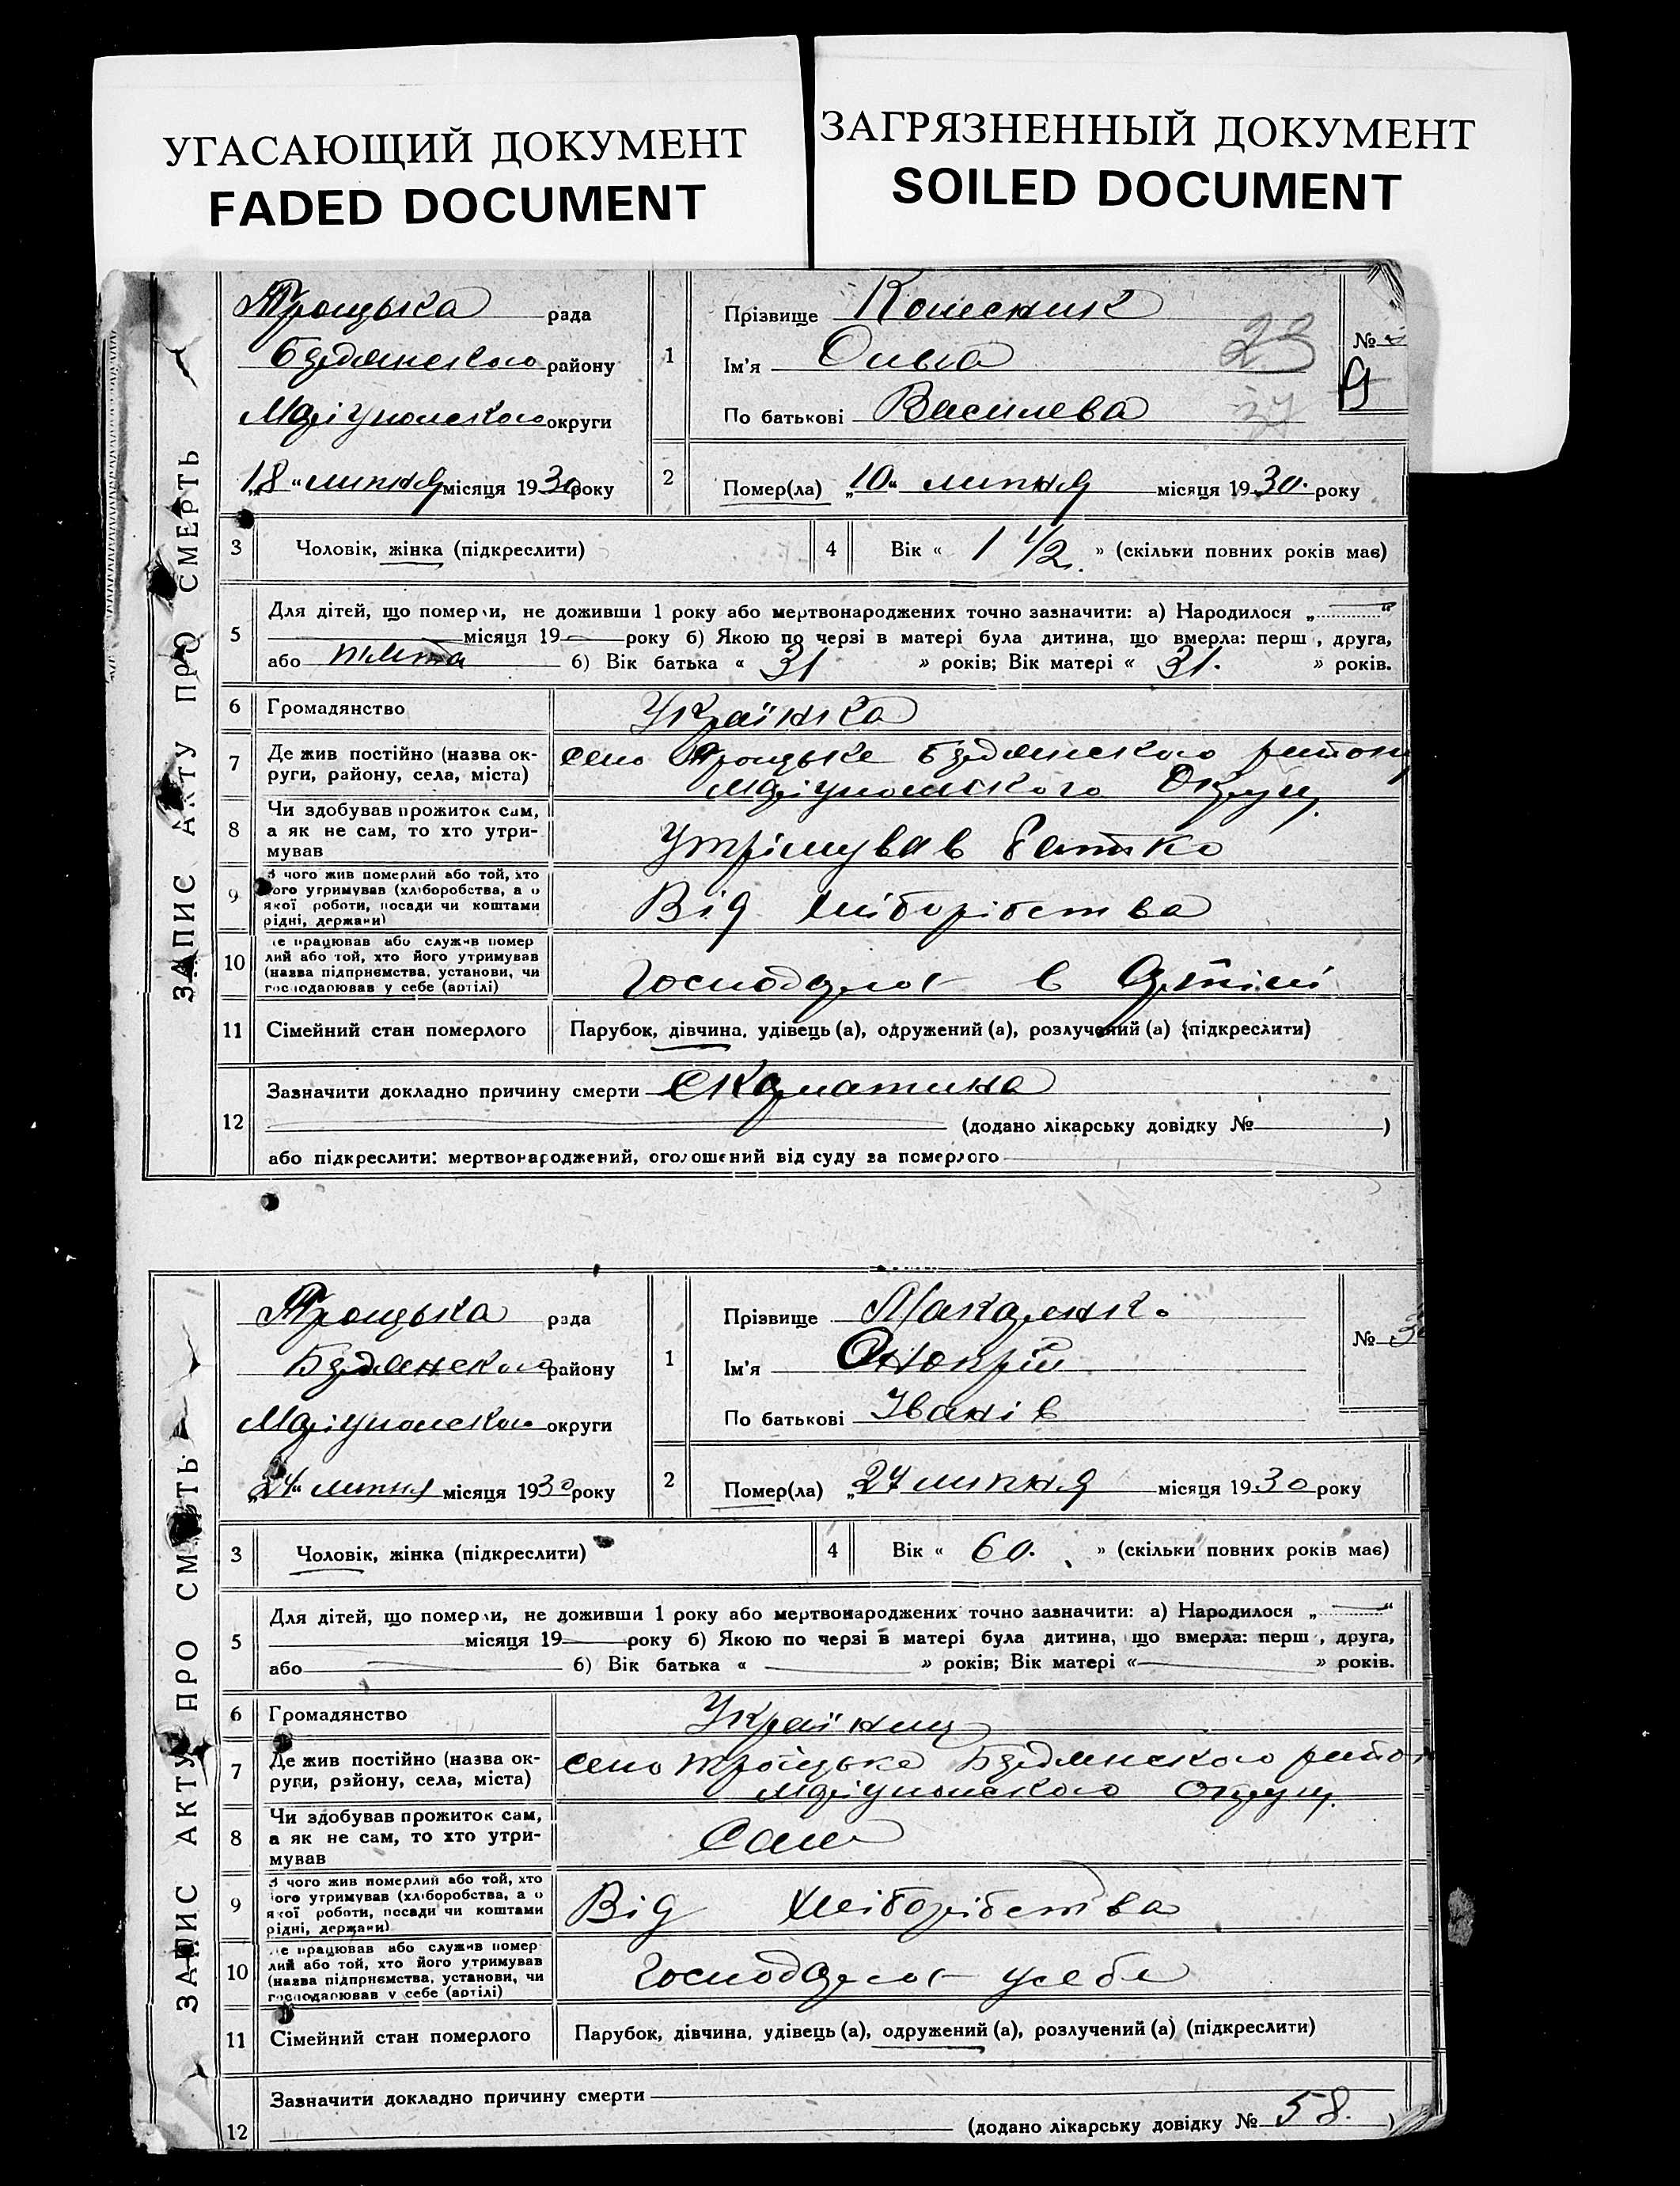 УГАСАЮЩИЙ ДОКУМЕНТ
FADED DOCUMENT
ЗАГРЯЗНЕННЫЙ ДОКУМЕНТ
SOILED DOCUMENT
ЗАПИС АКТУ ПРО СМЕРТЬ
Троцька рада
району
Маріупольского округи
„18“ липня місяця 1930 року
1
Прізвище Колесник
Ім'я Ольга
По батькові Василева
29
37
№
9
2
Помер(ла) „10“ липня місяця 1930. року
3 Чоловік, жінка (підкреслити)
4 Вік « 1 1/2. » (скільки повних років має)
5
Для дітей, що померли, не доживши 1 року або мертвонароджених точно зазначити: а) Народилося „ “
місяця 19 року б) Якою по черзі в матері була дитина, що вмерла: перш , друга,
або пʼята б) Вік батька « 31 » років; Вік матері « 31. » років.
6 Громадянство Українка
7 Де жив постійно (назва округи, району, села, міста)
село Троцьке району
Маріупольского Округу.
8 Чи здобував прожиток сам, а як не сам, то хто утримував
Утрімував батько
9 З чого жив померлий або той, хто його утримував (хліборобства, а о якої роботи, посади чи коштами рідні, держави)
Від хліборібства
10 е працював або служив померлий або той, хто його утримував (назва підприємства, установи, чи господарював у себе (артілі)
Господарює в Артілі
11 Сімейний стан померлого Парубок, дівчина, удівець (а), одружений (а), розлучений (а) (підкреслити)
12
Зазначити докладно причину смерти Скарлатина
(додано лікарську довідку № )
або підкреслити: мертвонароджений, оголошений від суду за померлого
ЗАПИС АКТУ ПРО СМЕРТЬ
Троцька рада
району
Маріупольского округи
„24“ липня місяця 1930 року
1
Прізвище Макаренко
Ім'я Онопрій
По батькові Іванів
№
2
Помер(ла) „24 липня місяця 1930 року
3 Чоловік, жінка (підкреслити)
4 Вік « 60. » (скільки повних років має)
5
Для дітей, що померли, не доживши 1 року або мертвонароджених точно зазначити: а) Народилося „ “
місяця 19 року б) Якою по черзі в матері була дитина, що вмерла: перш , друга,
або б) Вік батька « » років; Вік матері « » років.
6 Громадянство Українец
7 Де жив постійно (назва округи, району, села, міста)
село Троїцьке
Маріупольского Округу.
8 Чи здобував прожиток сам, а як не сам, то хто утримував
Сам
9 З чого жив померлий або той, хто його утримував (хліборобства, а о якої роботи, посади чи коштами рідні, держави)
Від хліборібства
10 е працював або служив померлий або той, хто його утримував (назва підприємства, установи, чи господарював у себе (артілі)
Господарює у себе
11 Сімейний стан померлого Парубок, дівчина, удівець (а), одружений (а), розлучений (а) (підкреслити)
12
Зазначити докладно причину смерти
(додано лікарську довідку № 58. )